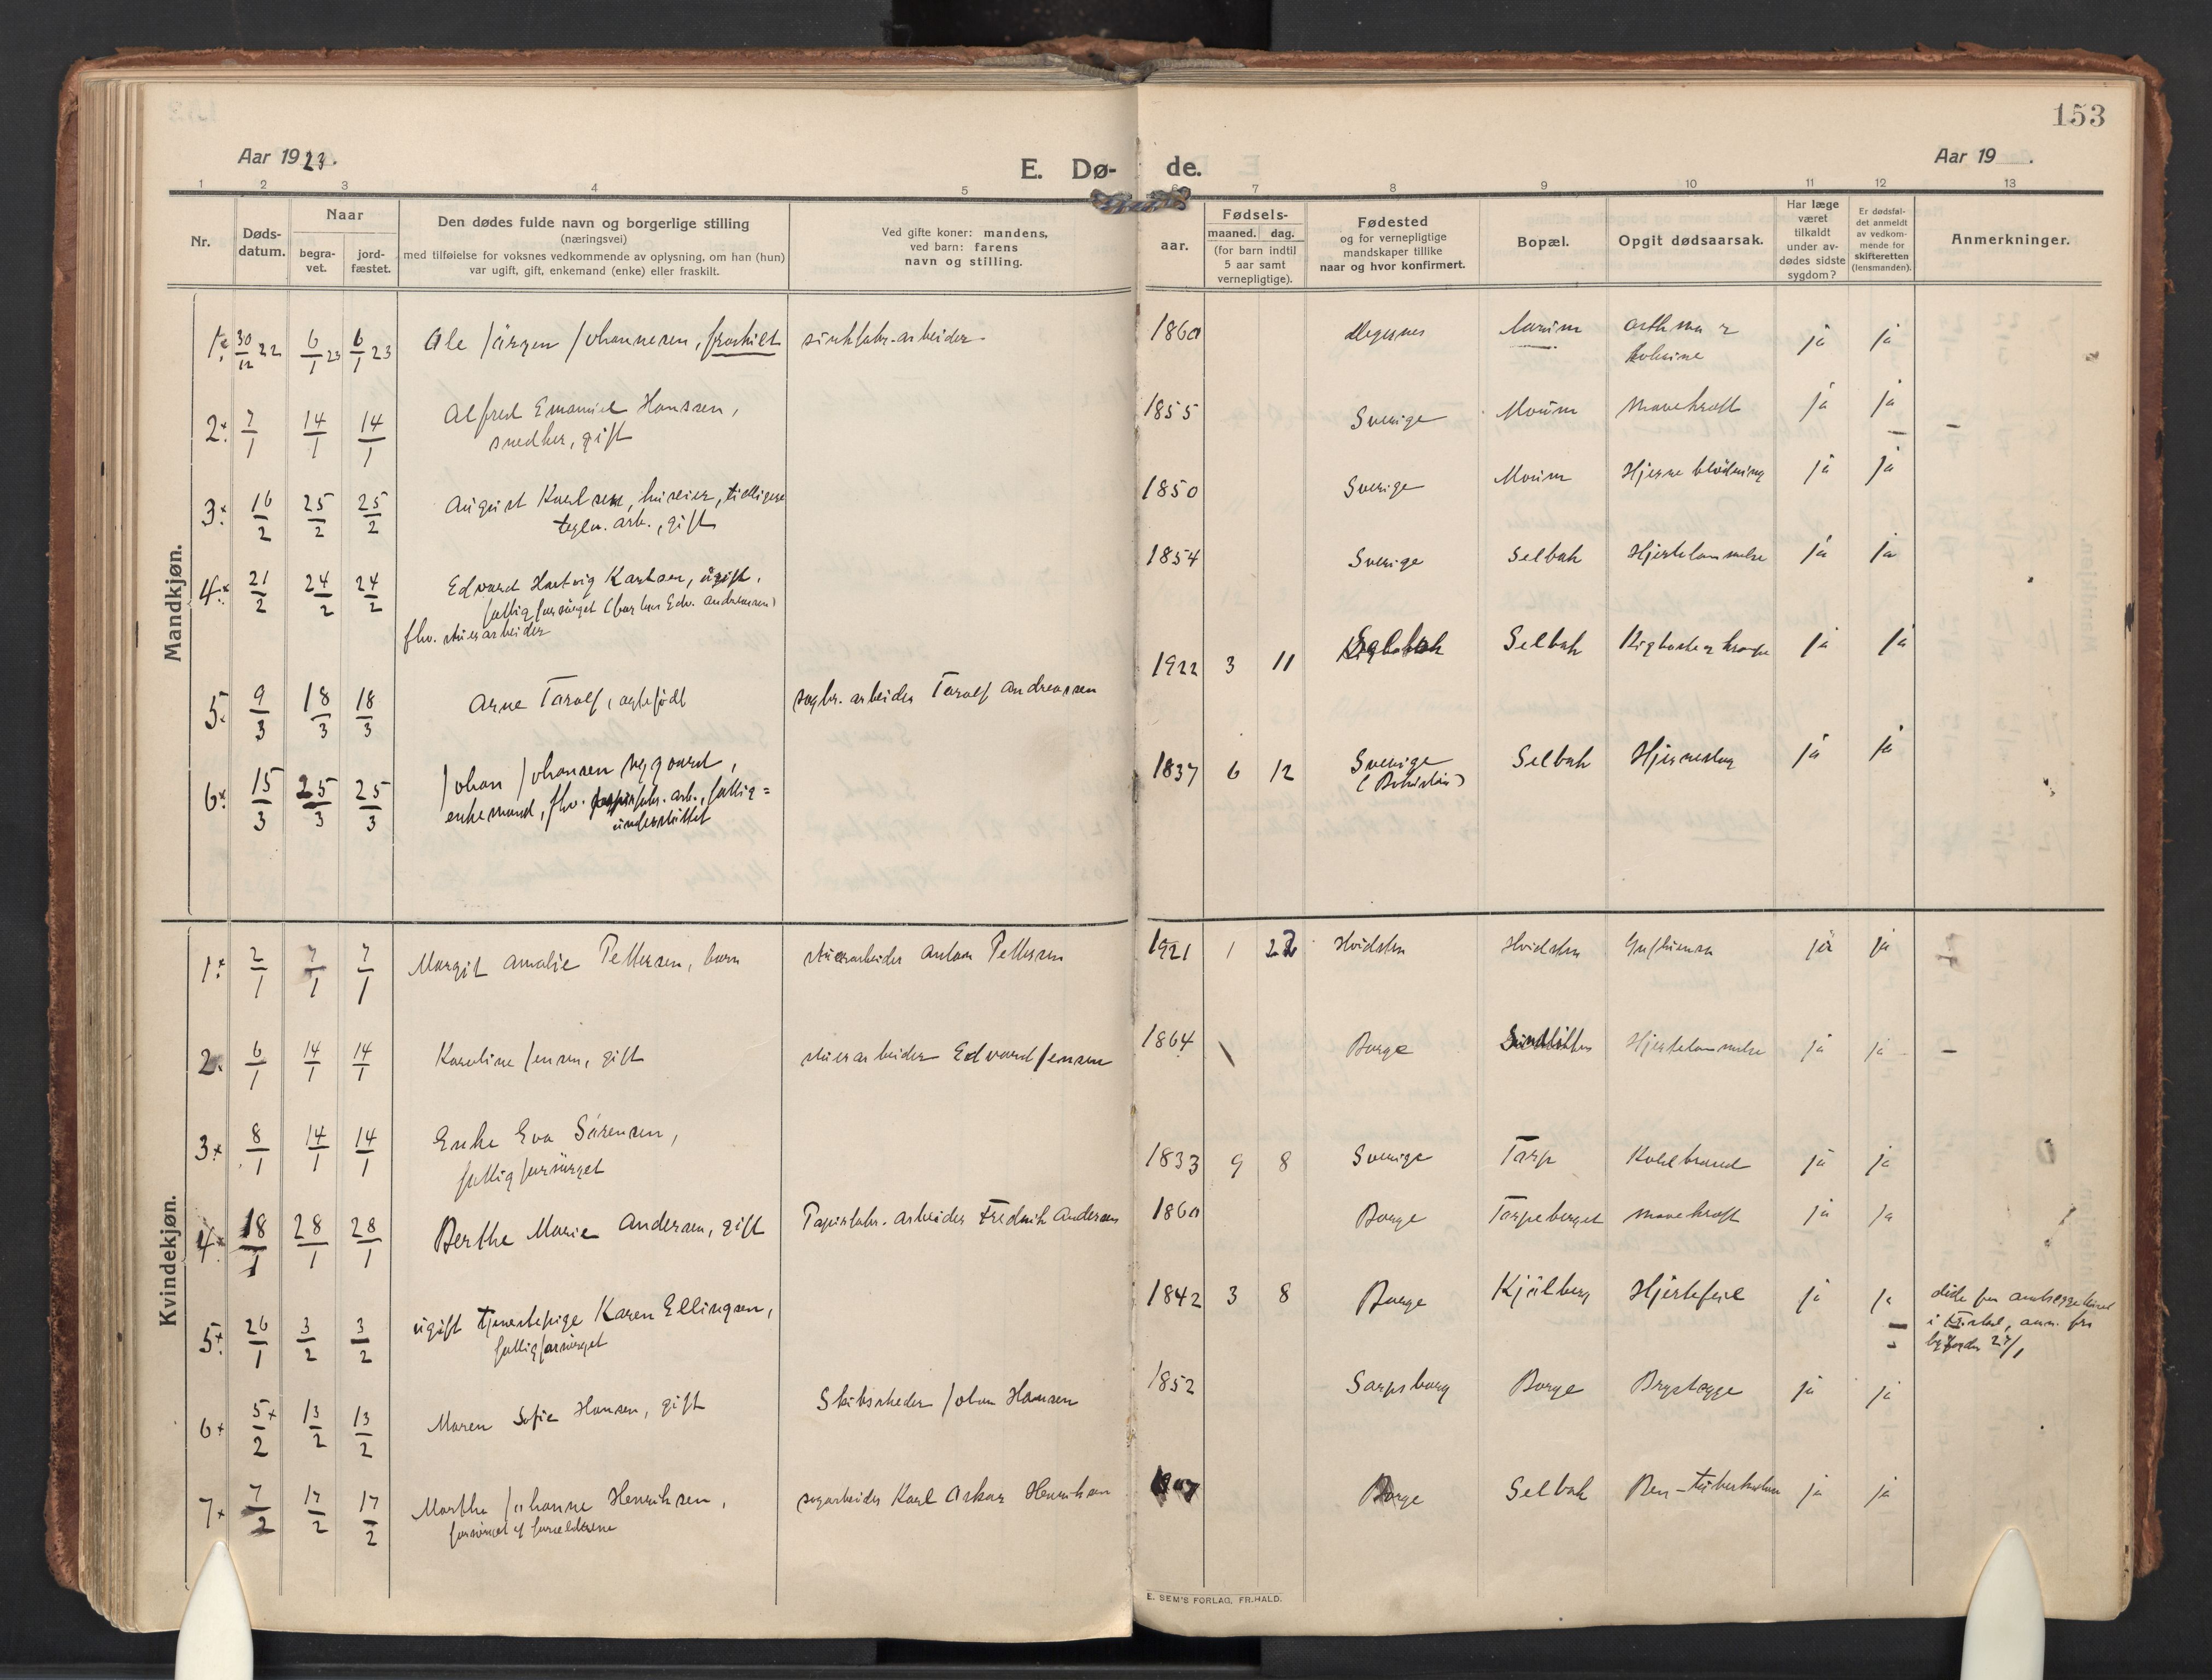 153
Aar 1923.
E. Dø- de.
Aar 19 .
1 2 3 4 5 6 7 8 9 10 11 12 13
Nr.
Døds-
datum.
Naar
begra-
vet.
jord-
fæstet.
Den dødes fulde navn og borgerlige stilling
(næringsvei)
med tilføielse for voksnes vedkommende av oplysning, om han (hun)
var ugift, gift, enkemand (enke) eller fraskilt.
Ved gifte koner: mandens,
ved barn: farens
navn og stilling.
Fødsels-
aar.
maaned. dag.
(for barn indtil
5 aar samt
vernepligtige).
Fødested
og for vernepligtige
mandskaper tillike
naar og hvor konfirmert.
Bopæl.
Opgit dødsaarsak.
Har læge
været
tilkaldt
under av-
dødes sidste
sygdom?
Er dødsfal-
det anmeldt
av vedkom-
mende for
skifteretten
(lensmanden).
Anmerkninger.
Mandkjøn.
1 30/12 22 6/1 23 6/1 23 Ole Jørgen Johannesen, fraskilt 1860 ja ja
2 7/1 14/1 14/1 Alfred Emanuel Hanssen, 1855 Sverige Moum Mavekræft ja ja
snedker, gift
3 16/2 25/2 25/2 August Karlsen, huseier, tidligere 1850 Sverige Moum Hjerneblødning ja ja
teglv. arb., gift
4 21/2 24/2 24/2 Edvard Hartvig Karlsen, ugift, 1854 Sverige Selbak Hjertelammelse ja ja
fattigforsørget (bor hos Edv. Andreassen)
fhv. stuerarbeider
5 9/3 18/3 18/3 Arne Torolf, ægtefødt sagbr. arbeider Torolf Andreassen 1922 3 11 Selbak Kighoste og krampe ja ja
6 15/3 25/3 25/3 Johan Johansen Nygaard, 1837 6 12 Sverige Selbak Hjerneslag ja ja
enkemand, fhv. papirfabr. arb., fattig=
understøttet
Kvindekjøn.
1 2/1 7/1 7/1 Margit Amalie Pettersen, barn stuerarbeider Anton Pettersen 1921 1 22 Hvidsten Hvidsten ja ja
2 6/1 14/1 14/1 Karoline Jensen, gift stuerarbeider Edvard Jensen 1864 Borge Hjertelammelse ja ja
3 8/1 14/1 14/1 Enke Eva Sørensen, 1833 9 8 Sverige Torp Koldbrand ja ja
fattigforsørget
4 18/1 28/1 28/1 Berthe Marie Andersen, gift Papirfabr. arbeider Fredrik Andersen 1860 Borge Torpeberget Mavekræft ja ja
5 26/1 3/2 3/2 ugift tjenestepige Karen Ellingsen, 1842 3 8 Borge Kjølberg Hjertefeil ja ja
fattigforsørget
6 5/2 13/2 13/2 Maren Sofie Hansen, gift Skibsrheder Johan Hansen 1852 Sarpsborg Borge ja ja
7 7/2 17/2 17/2 Marthe Johanne Henriksen, sagarbeider Karl Oskar Henriksen 1907 Borge Selbak Ben-tuberkulose ja ja
forsørget af forældrene
E. SEM'S FORLAG, FR.HALD.